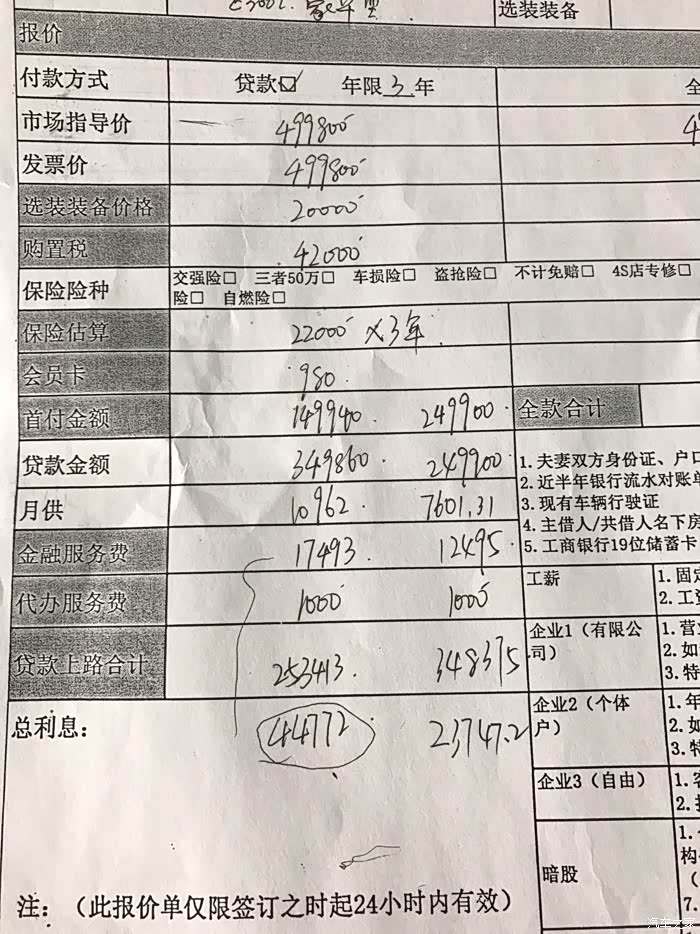 选装装备
报价
付款方式 贷款☑ 年限 3 年 全
市场指导价 499800
发票价 499800
选装装备价格 20000
购置税 42000
保险险种 交强险□ 三者50万□ 车损险□ 盗抢险□ 不计免赔□ 4S店专修□
险□ 自燃险□
保险估算 22000 ×3年
会员卡 980
首付金额 149940 249900 全款合计
贷款金额 349860 249900
月供 10962 7601.31
1. 夫妻双方身份证、户口
2. 近半年银行流水对账单
3. 现有车辆行驶证
4. 主借人/共借人名下房
5. 工商银行19位储蓄卡
金融服务费 17493 12495
代办服务费 1000 1000
贷款上路合计 253413 348375
总利息: 44772 23747.2
工薪 1. 固定
2. 工资
企业1（有限公司） 1. 营
2. 如
3. 特
企业2（个体户） 1. 年
2. 如
3. 特
企业3（自由） 1.
2.
暗股 1.
构
（
7.
注:（此报价单仅限签订之时起24小时内有效）
汽车之家